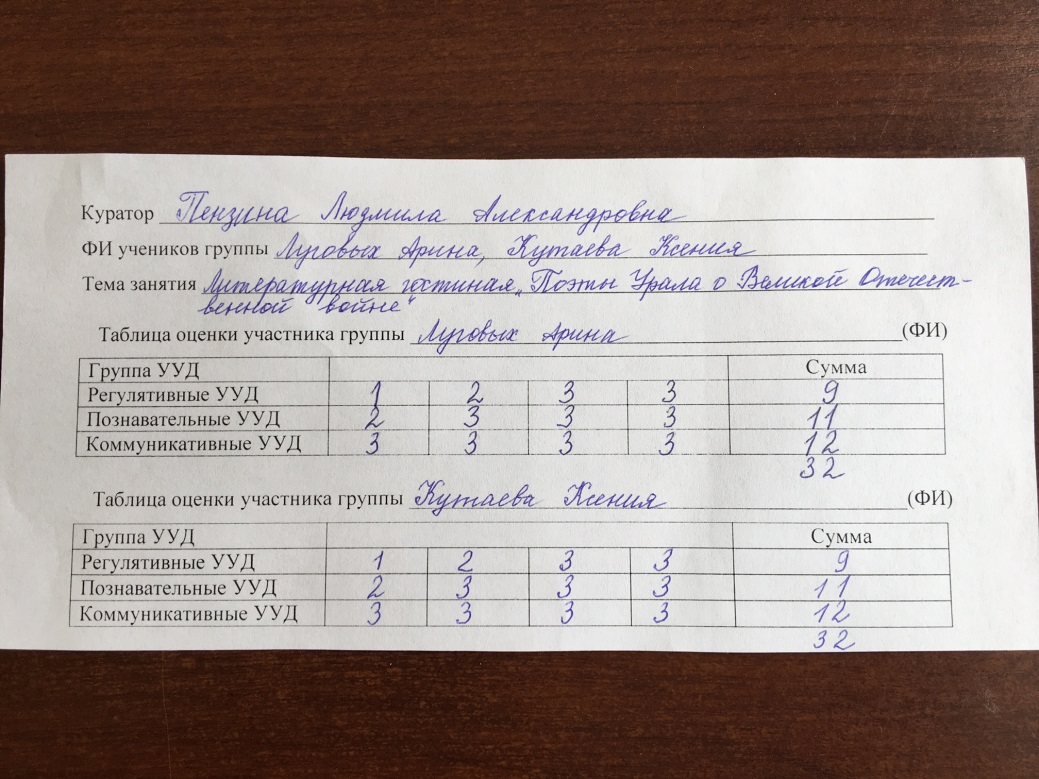 Куратор Пензина Людмила Александровна
ФИ учеников группы Луговых Арина, Кутаева Ксения
Тема занятия Литературная гостиная „Поэты Урала о Великой Отечест-
венной войне“
Таблица оценки участника группы Луговых Арина (ФИ)
Группа УУД Сумма
Регулятивные УУД 1 2 3 3 9
Познавательные УУД 2 3 3 3 11
Коммуникативные УУД 3 3 3 3 12
32
Таблица оценки участника группы Кутаева Ксения (ФИ)
Группа УУД Сумма
Регулятивные УУД 1 2 3 3 9
Познавательные УУД 2 3 3 3 11
Коммуникативные УУД 3 3 3 3 12
32